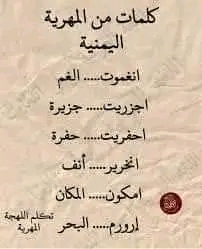 كلمات من المهرية
اليمنية
انغموت..... الغم
اجزريت..... جزيرة
احفريت..... حفرة
انخرير..... أنف
امكون..... المكان
إرورم..... البحر
تكلم اللهجة
المهرية